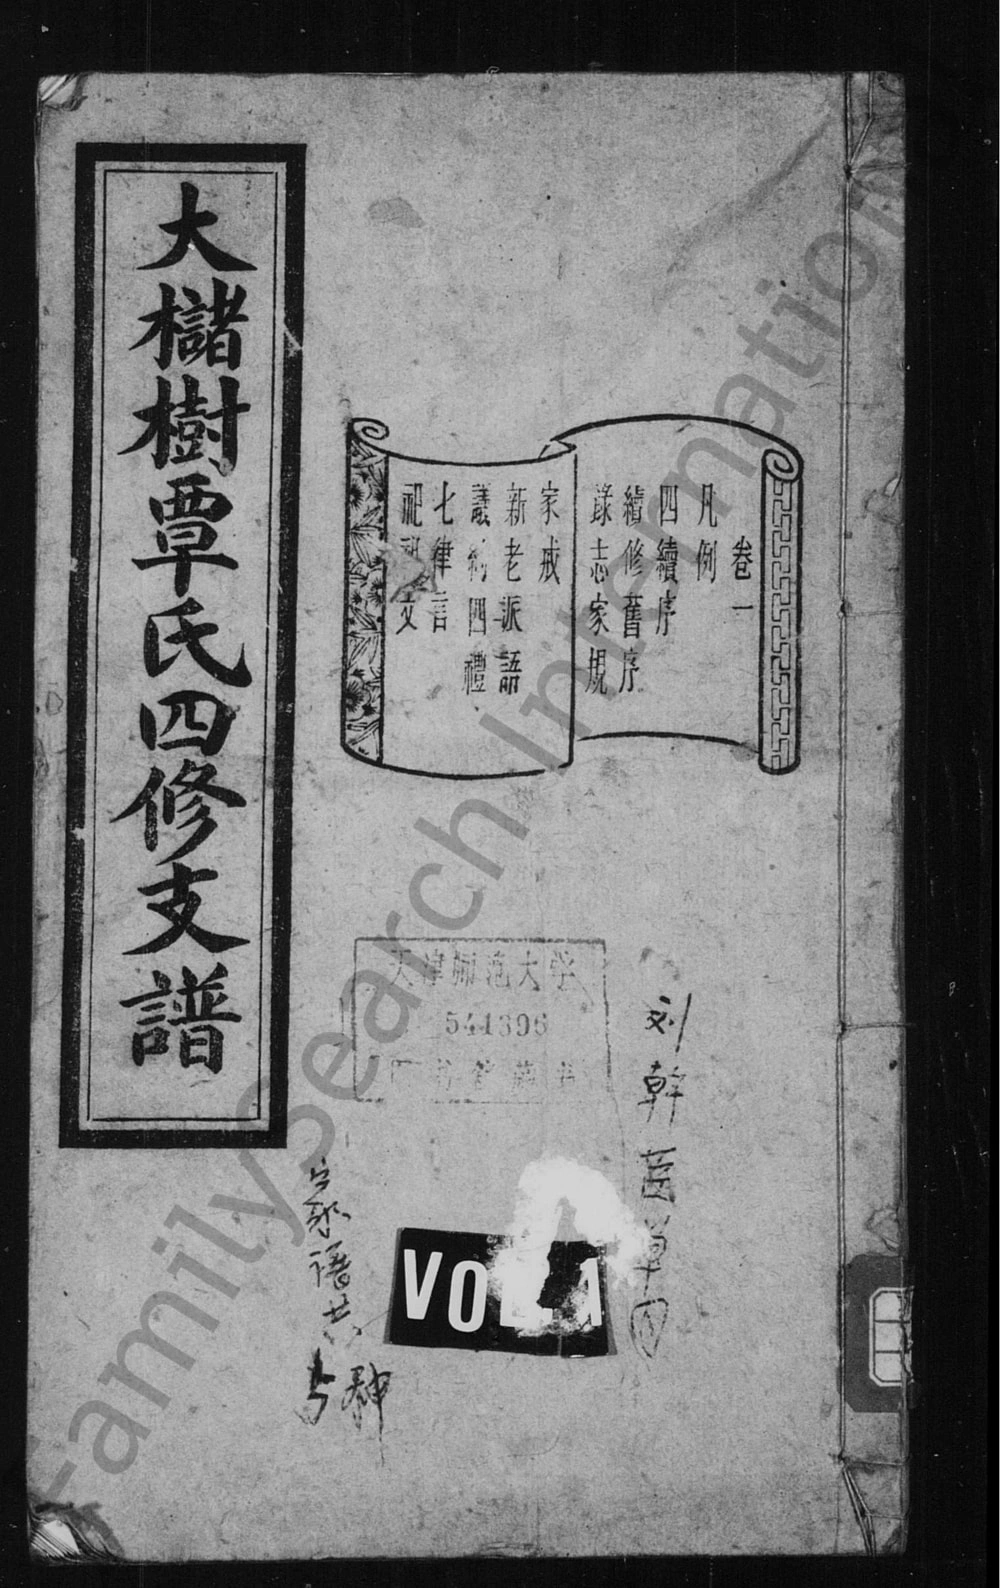 大櫧樹覃氏四修支譜
卷一
凡例
四續序
續修舊序
錄志家規
家戒
新老派語
議約四禮
七律言
祀祝文
天津师范大学
541396
刘幹
VO
1
FamilySearch International